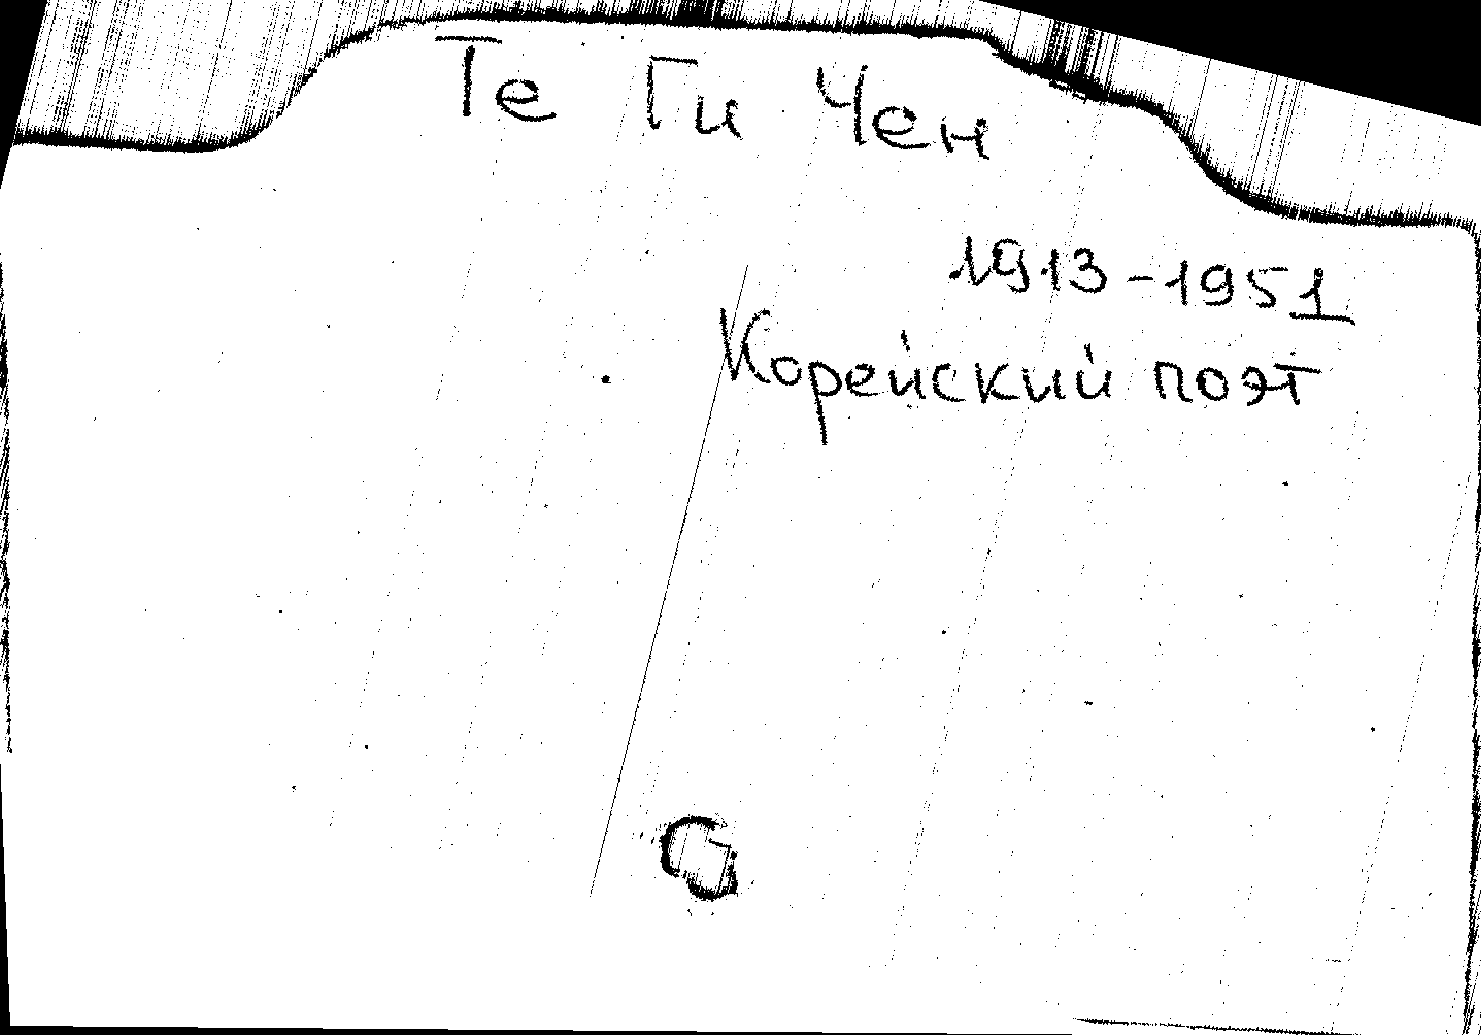 Те Ги Чен
1913-1951
Корейский поэт